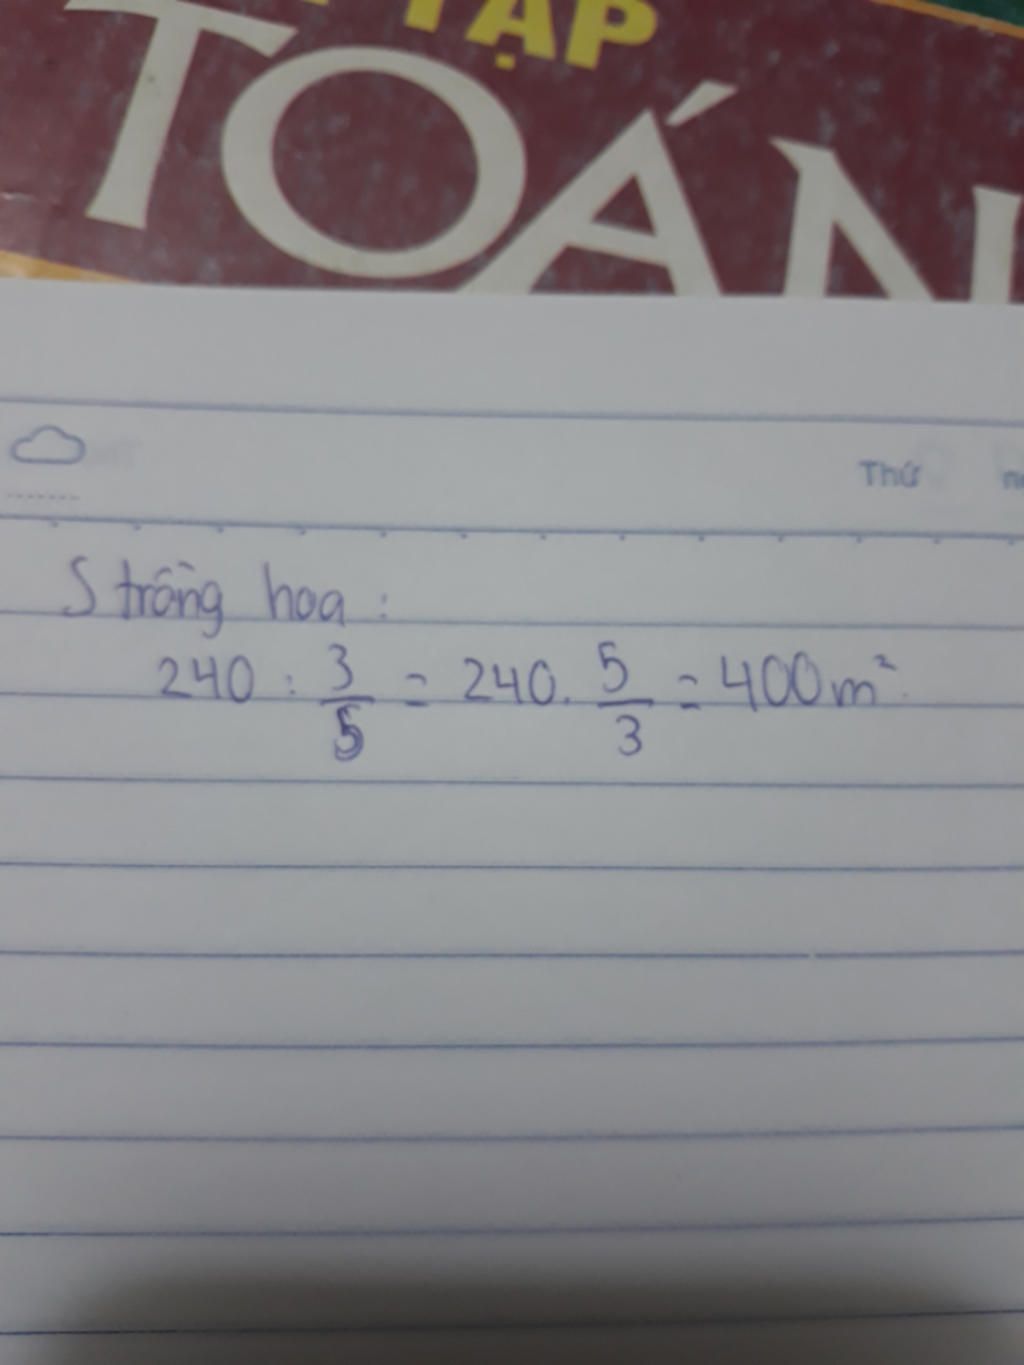 TẬP
TOÁN
Thứ
S trồng hoa :
240 : 3/5 = 240. 5/3 = 400m².